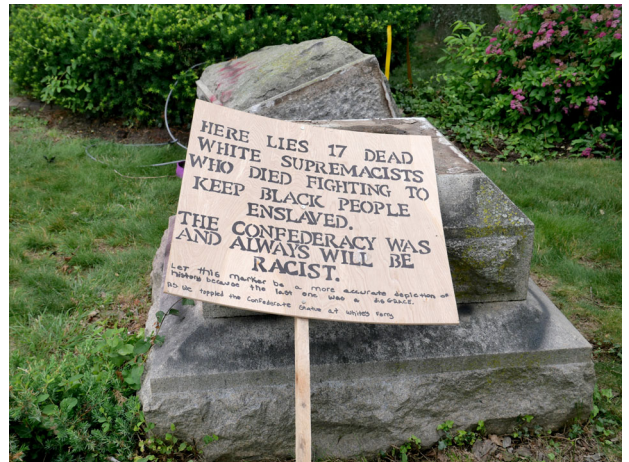 HERE LIES 17 DEAD
WHITE SUPREMACISTS
WHO DIED FIGHTING TO
KEEP BLACK PEOPLE
ENSLAVED.
THE CONFEDERACY WAS
AND ALWAYS WILL BE
RACIST.
Let this marker be a more accurate depiction of
history because the last one was a disgrace.
PS We toppled the Confederate Statue at Whites Ferry